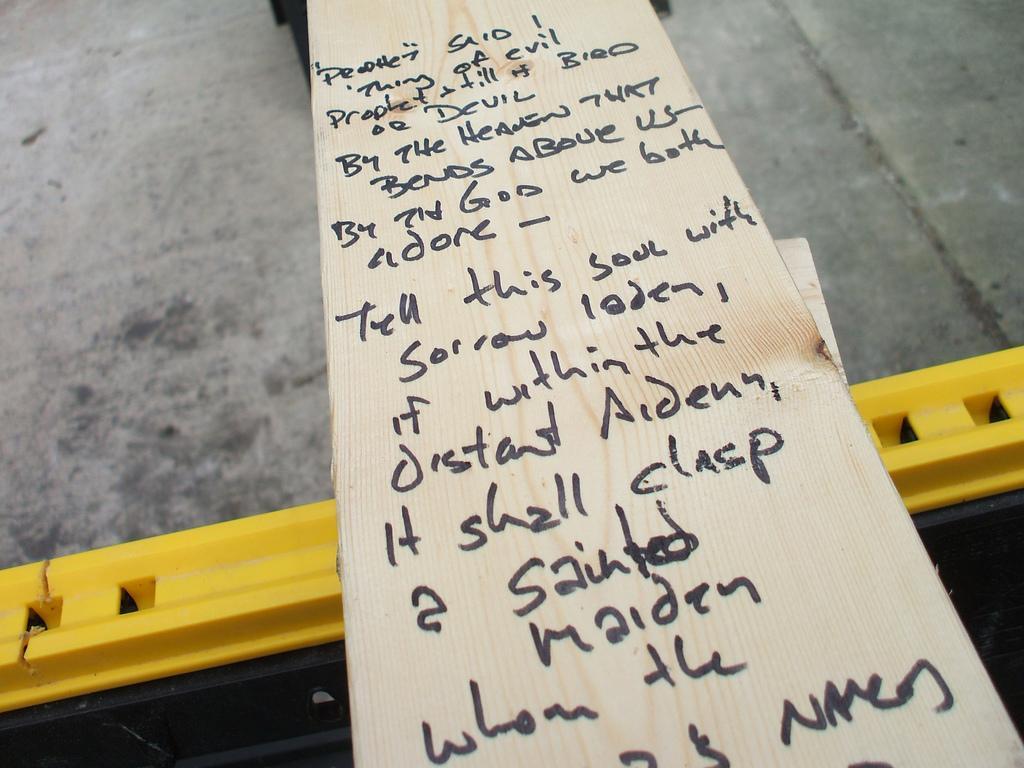 "Prophet" said!
thing of evil
prophet still if BIRD
OR DEVIL
BY THE HEAVEN THAT
BENDS ABOVE US-
BY THE GOD we both
adore -
Tell this soul with
sorrow laden,
if within the
distant Aidenn,
It shall clasp
a sainted
maiden
whom the
NAMED